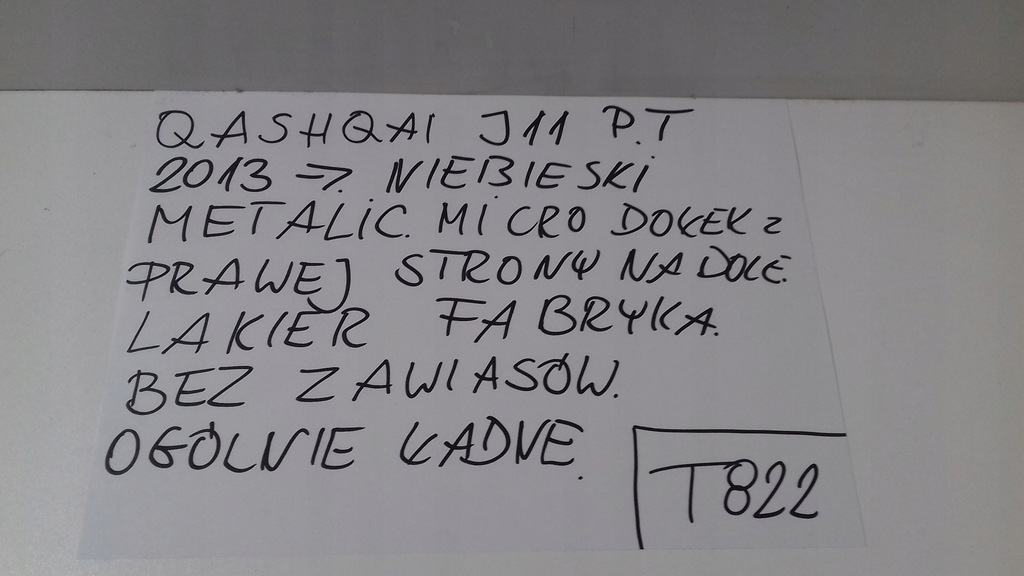 QASHQAI J11 P.T
2013 => NIEBIESKI
METALIC. MICRO DOŁEK z
PRAWEJ STRONY NA DOLE.
LAKIER FABRYKA.
BEZ ZAWIASÓW.
OGÓLNIE ŁADNE.
T822